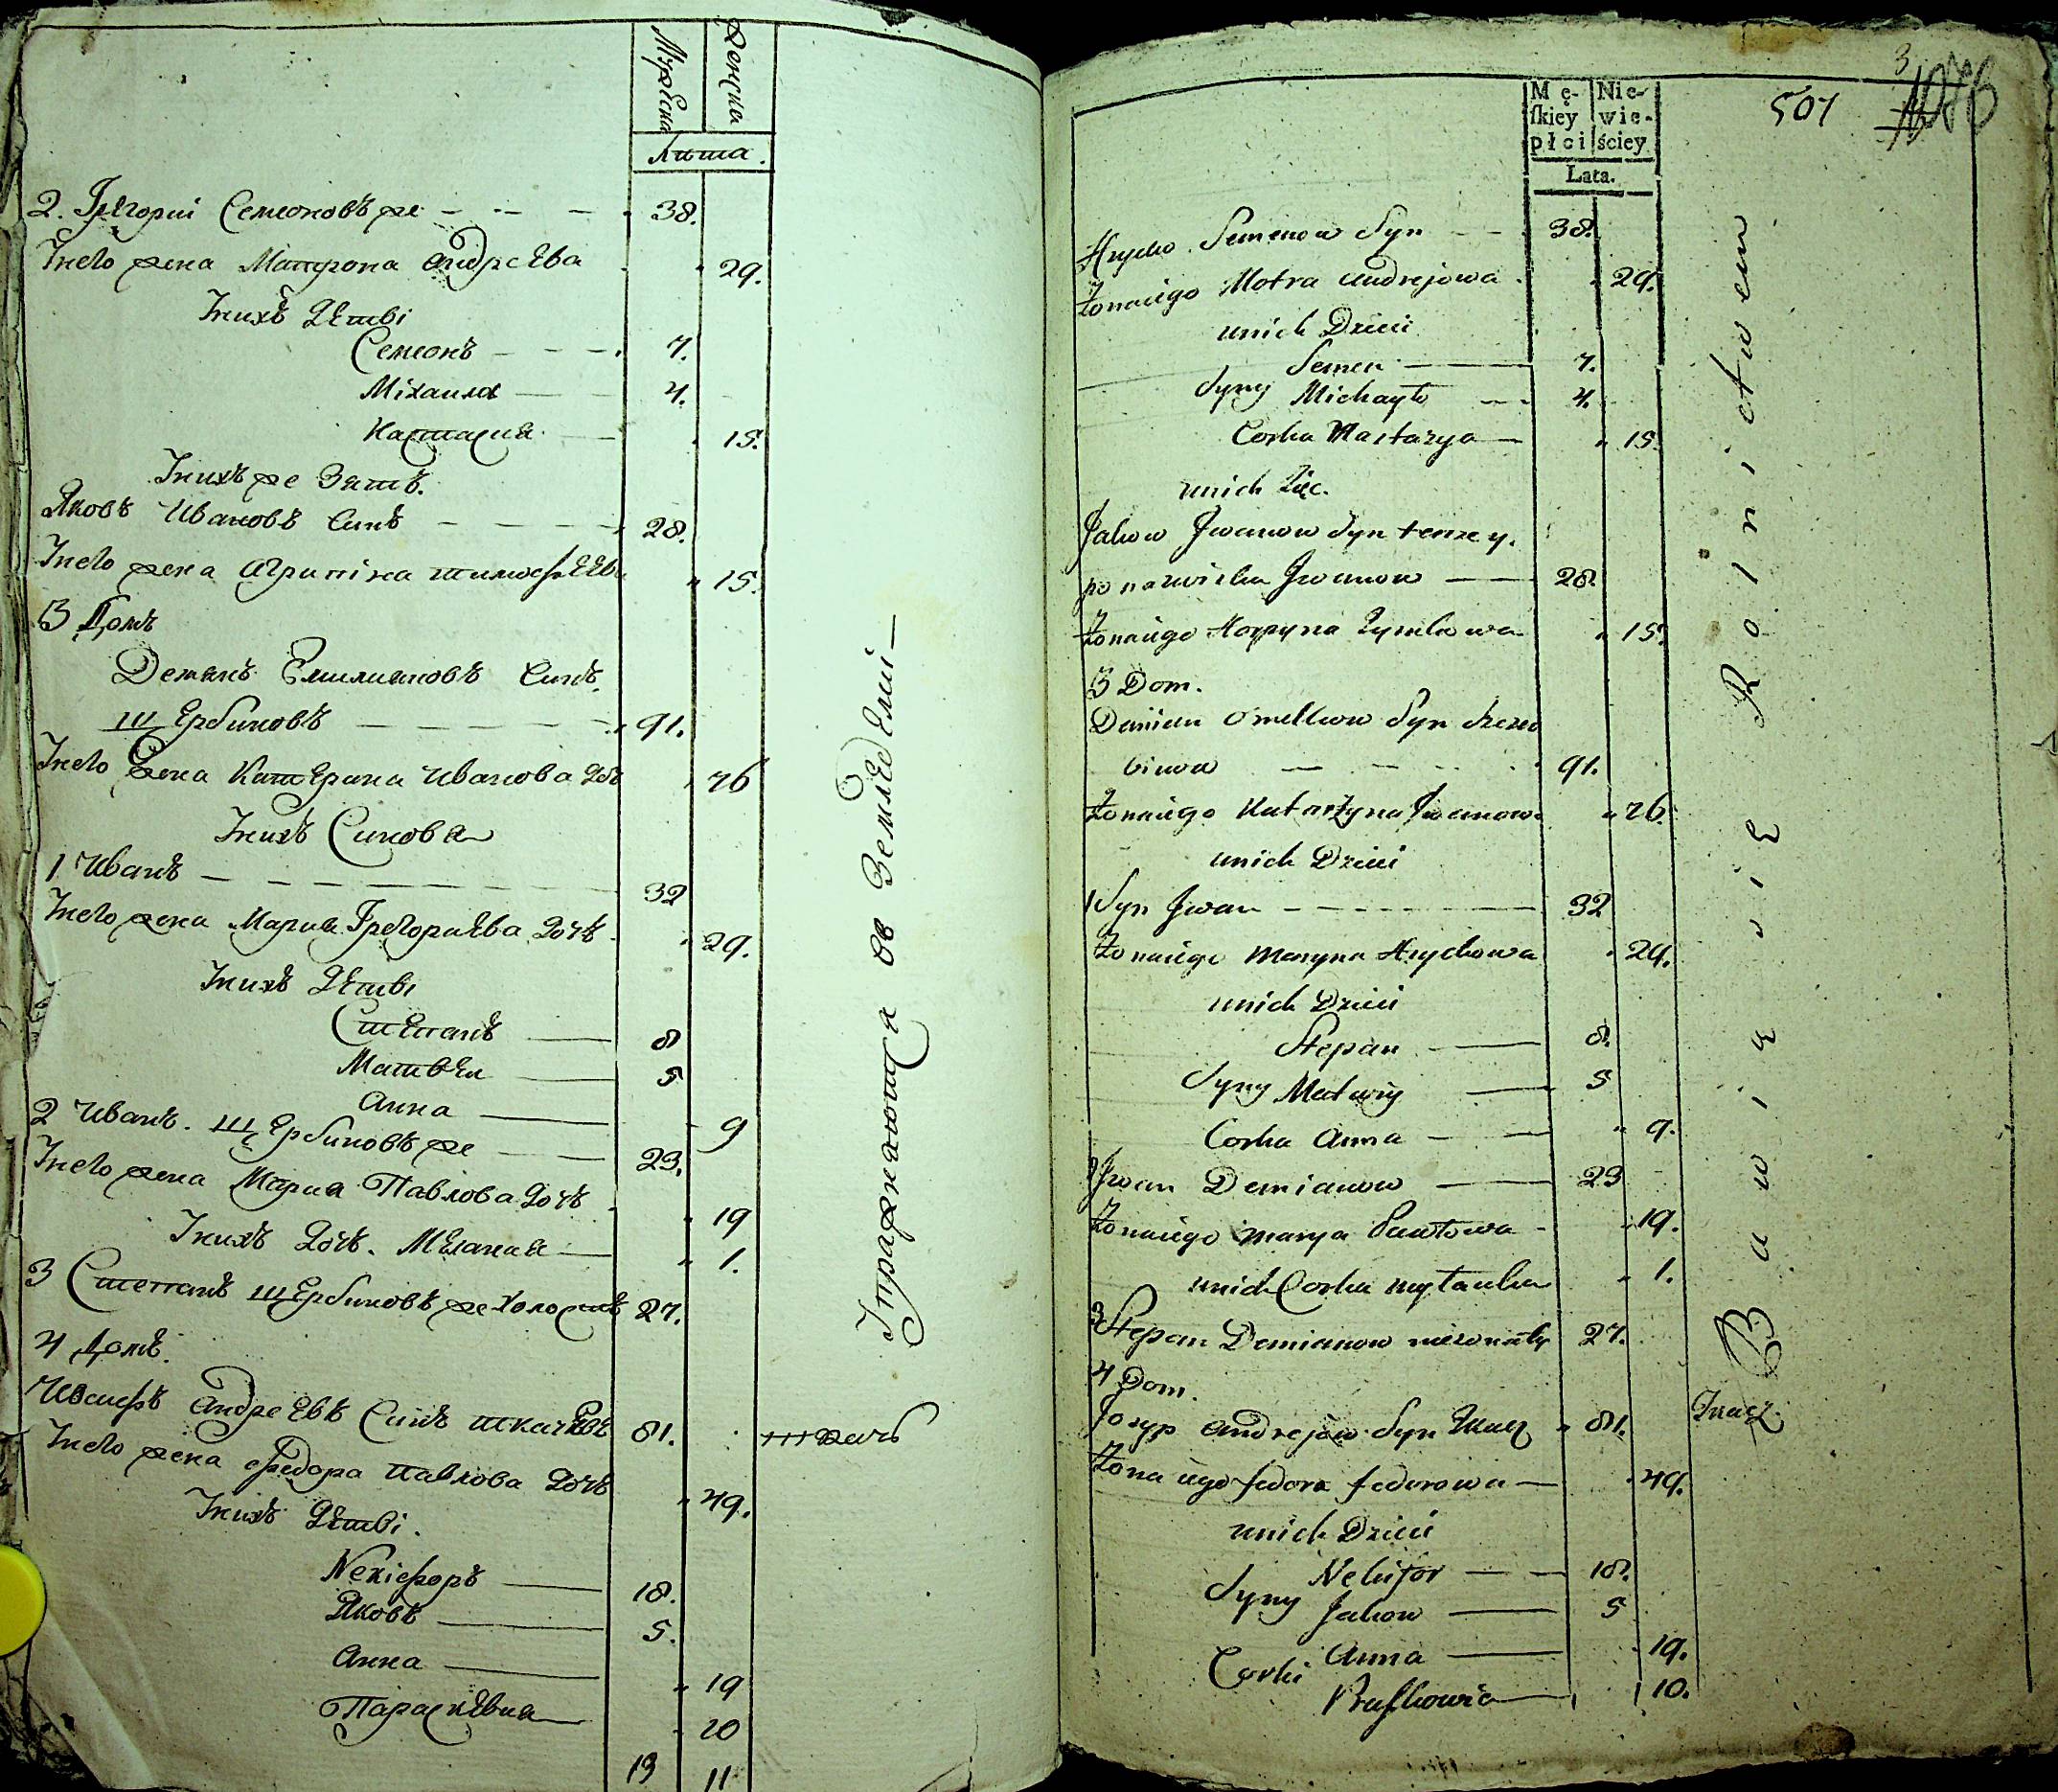 Мужеска
Женска
Лита.
2. Григорий Семеоновъ же - - - 38.
Інего жена Матрона Андреева 29.
Інихъ Дѣтві
Семеонъ - - - 7.
Міхаила 4.
Настасия 15.
Інихъ же Зять.
Яковъ Ивановъ Синъ - - - 28.
Інего жена Агрипіна Тимофѣева 15.
3 Домъ
Демянъ Емилияновъ Синъ
Щербиновъ - - - 91.
Інего жена Катерина Иванова доч 76
Інихъ Синовя
1 Иванъ - - - 32
Інего жена Мария Грегориева Дочъ 29.
Інихъ Дѣтві
Степанъ 8
Матвѣи 5
Анна 9
2 Иванъ. Щербиновъ же 23.
Інего жена Мария Павлова Дочъ 19
Інихъ Дочъ. Мелания 1.
3 Степанъ Щербиновъ же Холостъ 27.
4 Домъ.
Иосифъ Андреевъ Синъ Ткачъ 81.
Інего жена Федора Павлова Дочъ 49.
Інихъ Дѣтві.
Некіфоръ 18.
Яковъ 5.
Анна 19
Параскевия 10
13 11
Упражняются ов Земледелиі
ткачъ
Mę-
ſkiey
płci
Nie-
wie-
ściey
Lata.
501
3
Hryćko Semenow Syn - - 38.
Żona iego Motra Andrejowa 29.
u nich Dzieci
Semen 7.
Syny Michayło 4.
Corka Nastazya 15
u nich Zięć.
Jakow Jwanow Syn tenże y.
po nazwisku Jwanow 28.
Żona iego Horpyna Tymkowa 15.
3 Dom.
Demian Omelkow Syn Szczer
binow 91.
Żona iego Katarzyna Jwanow. 76.
u nich Dzieci
1 Syn Jwan 32
Żona iego Maryna Hryćkowa 29.
u nich Dzieci
Stepan 8.
Syny Matwiy 5
Corka Anna 9.
2 Jwan Demianow 23
Żona iego Marya Pawłowa 19.
u nich Corka Myłanka 1.
3 Stepan Demianow nieżonaty 27.
4 Dom.
Josyp Andrejow Syn Tkacz 81.
Żona iego Fedora Fedorowa 49.
u nich Dzieci
Nekifor 18.
Syny Jakow 5
Corki Anna 19.
Paraskowia 10.
Bawią się Rolnictwem
Tkacz